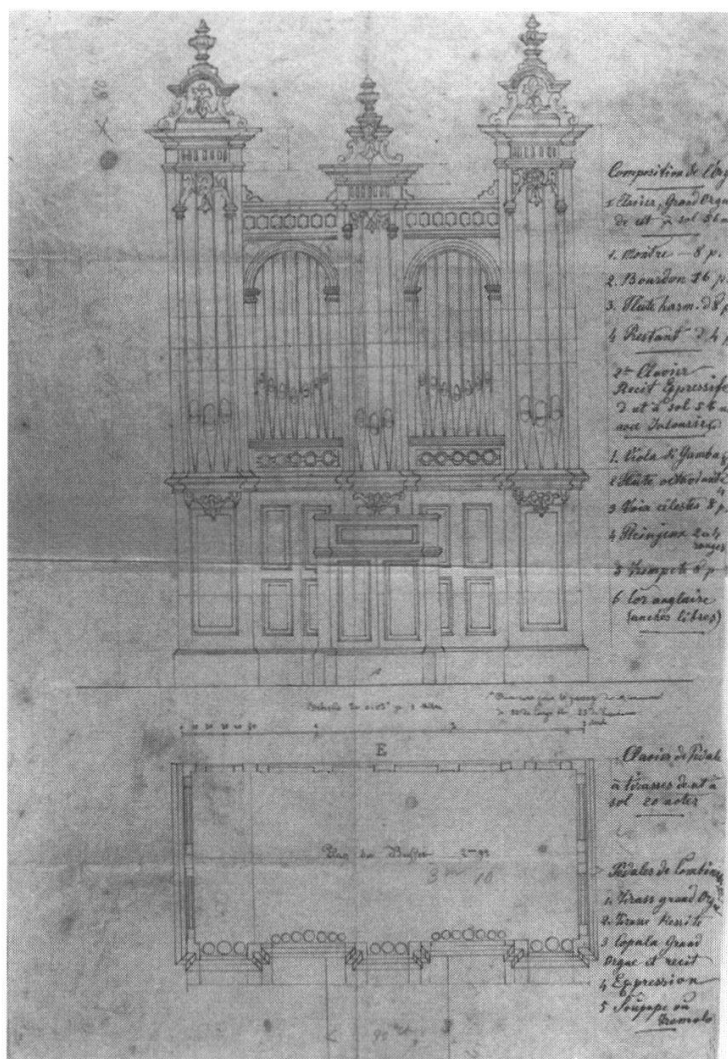 Composition de l'Orgue
1 Clavier, Grand Orgue
de ut à sol 56 n
1. Montre — 8 p.
2. Bourdon 16 p.
3. Flûte harm. d 8 p
4 Prestant d 4 p
2me Clavier
Recit Expressife
d ut à sol 56 n
avec
1. Viola di Gamba
2 Flûte octaviante
3 Voix célestes 8 p.
4 Pleinjeux 2 a 4
ranges
5 Trompete 8 p
6 Cor anglaise
(anches libres)
E
Clavier de Pédale
à tirasses de ut à
sol 20 notes
Plan du Buffet 2m 93
3m 10
Pédales de Combin
1. Tirass grand Orgue
2. Tirass Ressits
3 Copula Grand
Orgue et recit
4 Expression
5 Soupape ou
Tremolo